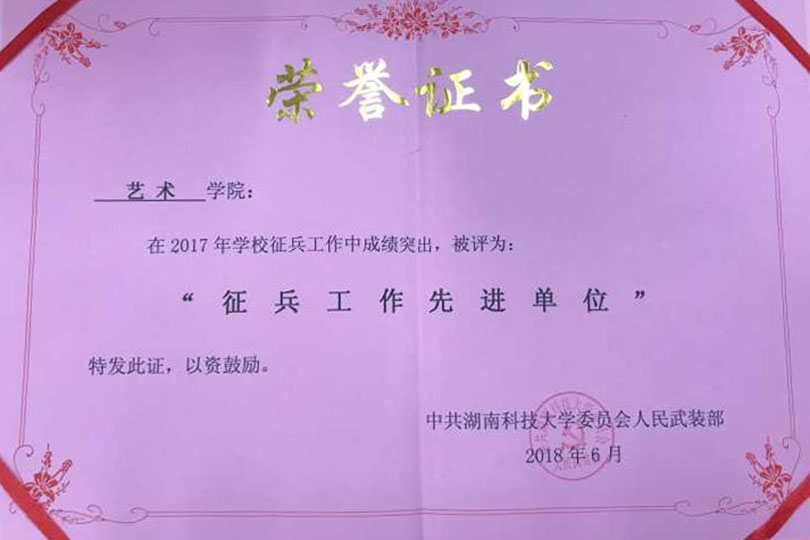 荣誉证书
艺术 学院：
在2017年学校征兵工作中成绩突出，被评为：
“征兵工作先进单位”
特发此证，以资鼓励。
中共湖南科技大学委员会人民武装部
2018年6月